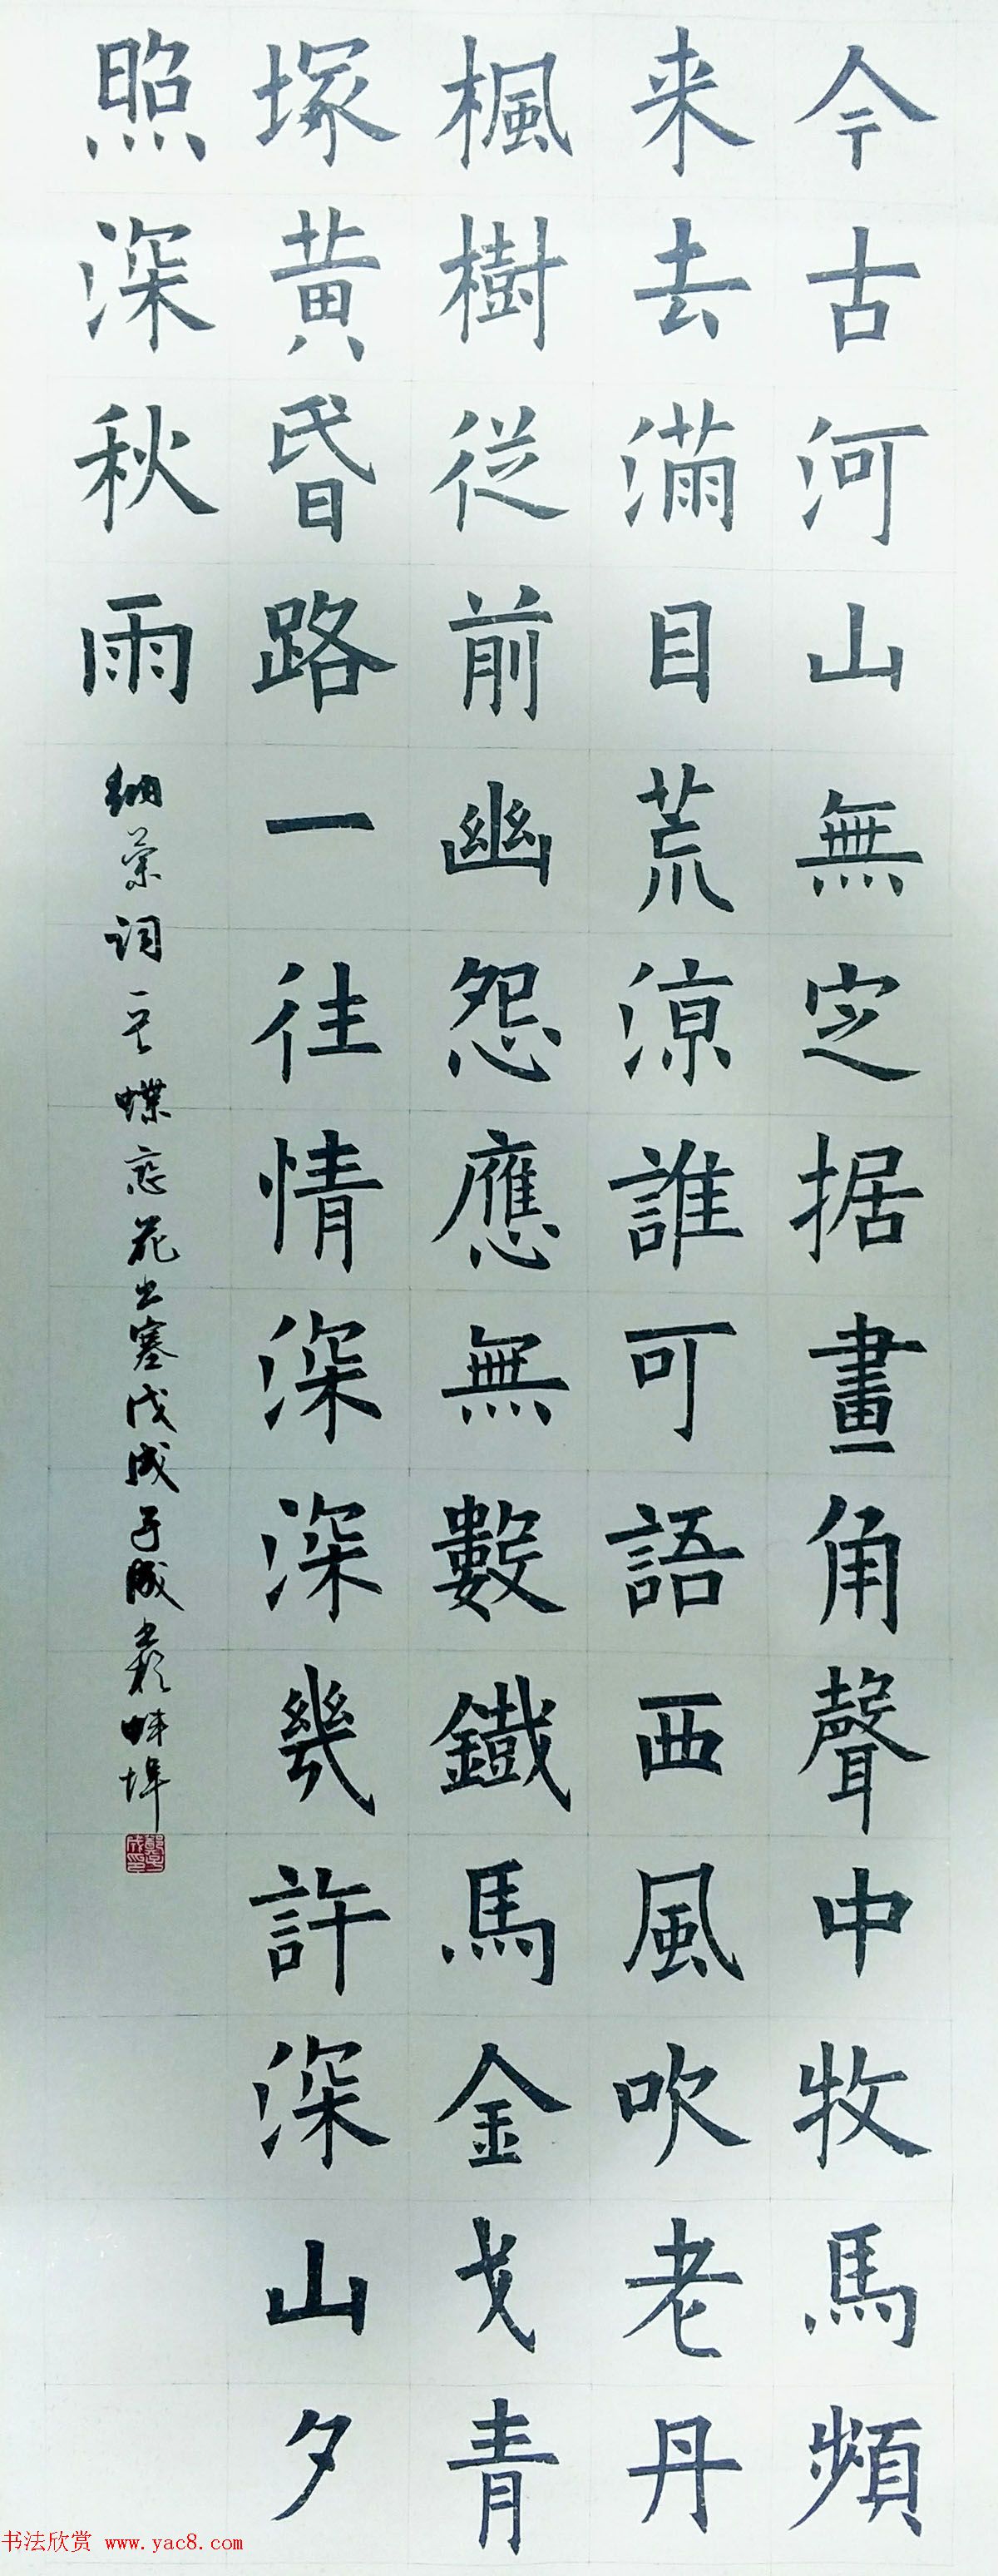 今古河山無定据畫角聲中牧馬頻
来去滿目荒涼誰可語西風吹老丹
楓樹從前幽怨應無數鐵馬金戈青
塚黃昏路一往情深深幾許深山夕
照深秋雨
納蘭詞一首蝶恋花出塞戊戌子成書於蚌埠
书法欣赏 www.yac8.com